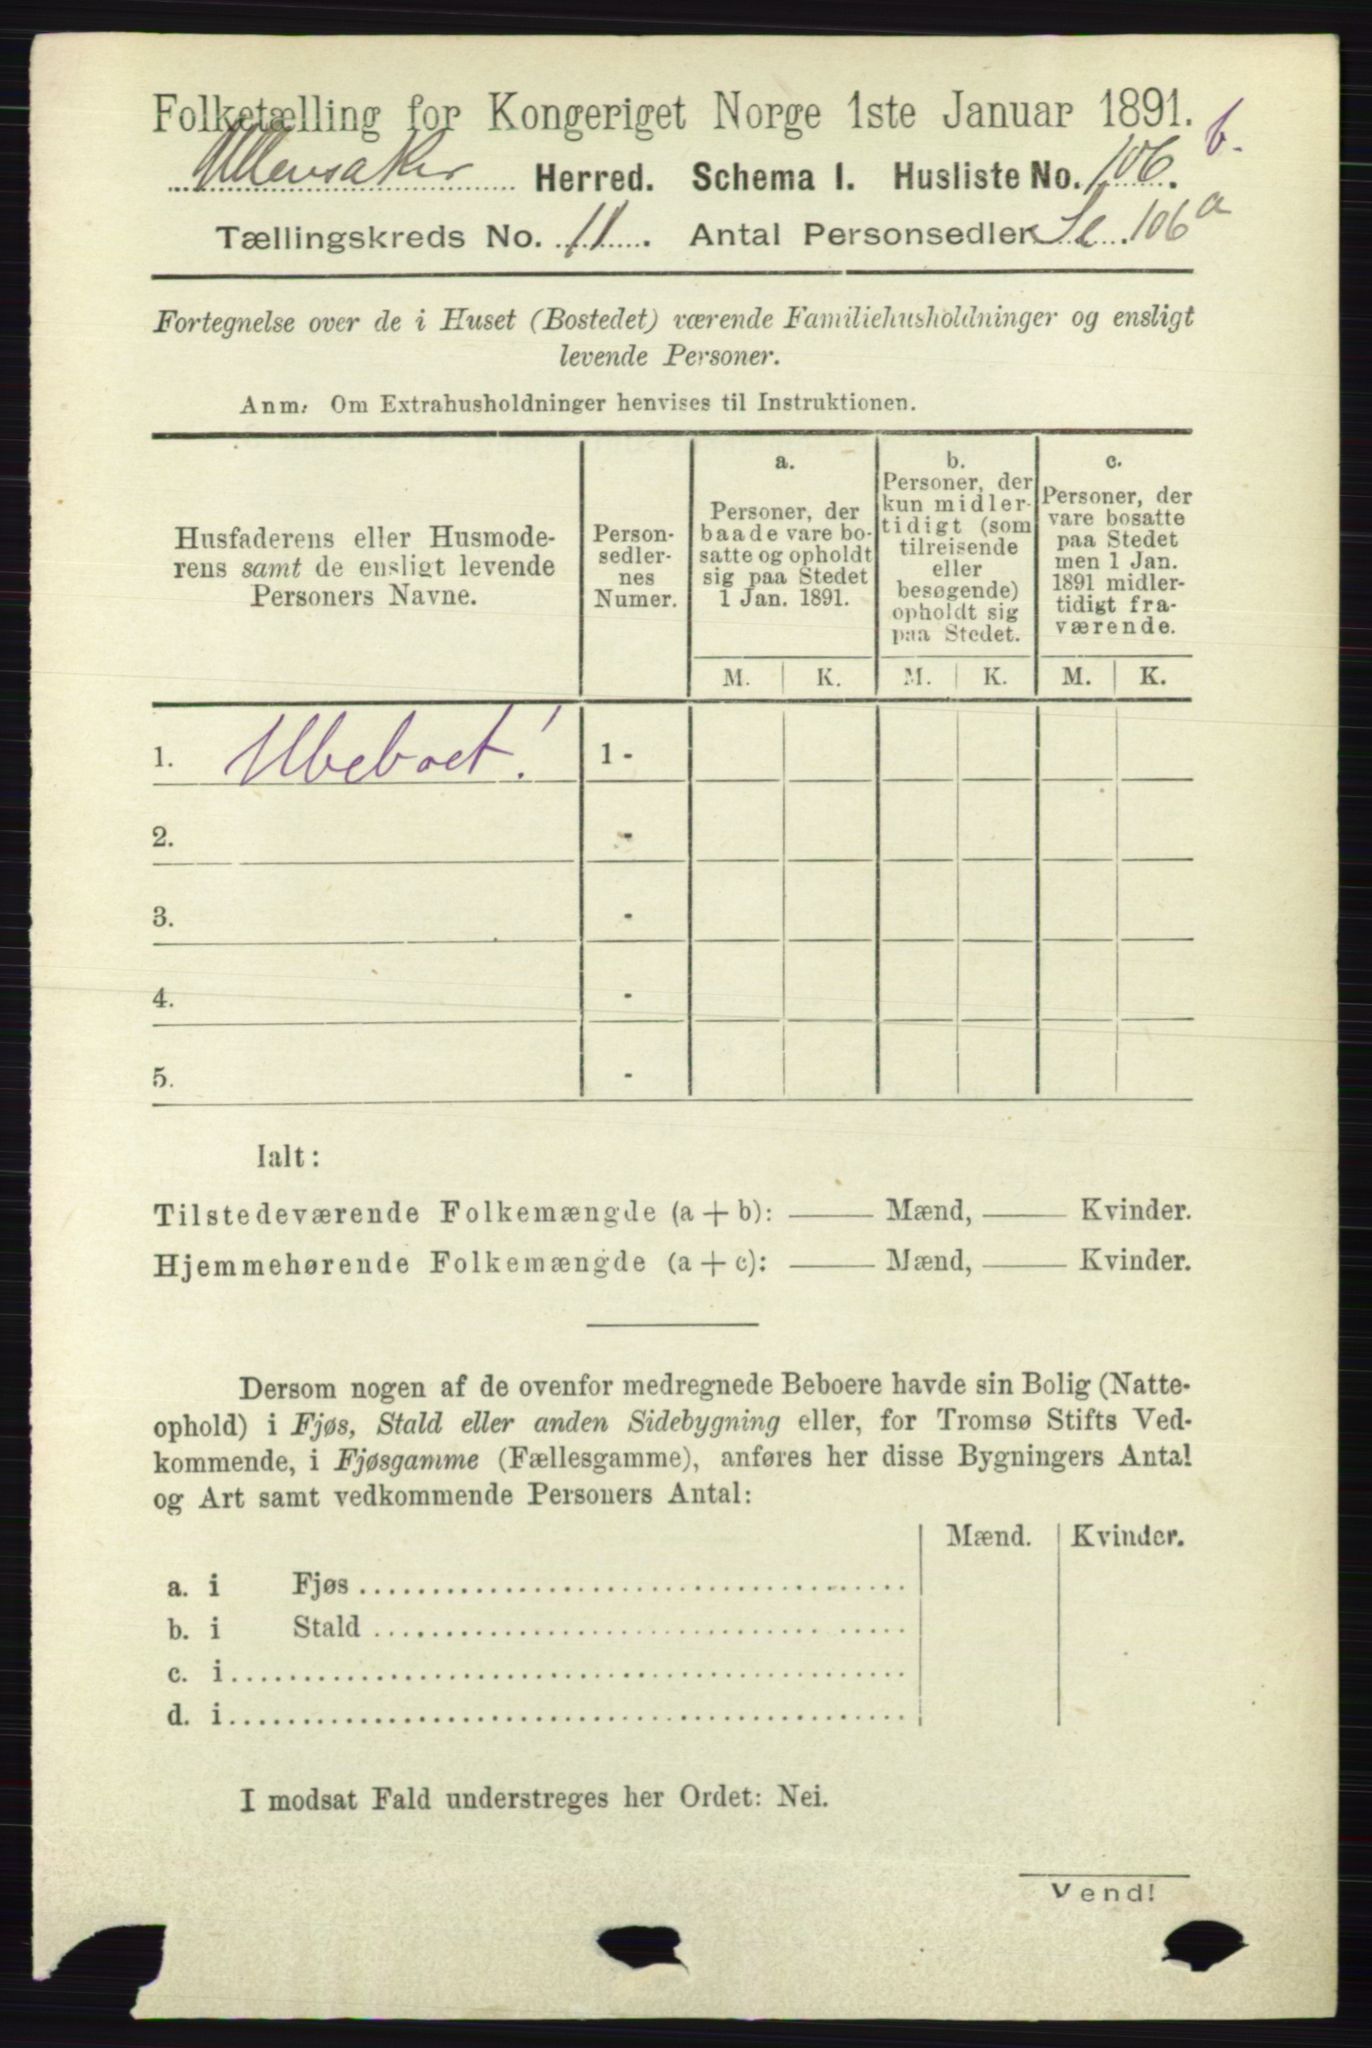 Folketælling for Kongeriget Norge 1ste Januar 1891.
Ullensaker Herred. Schema I. Husliste No. 106 b.
Tællingskreds No. 11. Antal Personsedler Se 106 a
Fortegnelse over de i Huset (Bostedet) værende Familiehusholdninger og ensligt
levende Personer.
Anm: Om Extrahusholdninger henvises til Instruktionen.
Husfaderens eller Husmode-
rens samt de ensligt levende
Personers Navne.
Person-
sedler-
nes
Numer.
a.
Personer, der
baade vare bo-
satte og opholdt
sig paa Stedet
1 Jan. 1891.
b.
Personer, der
kun midler-
tidigt (som
tilreisende
eller
besøgende)
opholdt sig
paa Stedet.
c.
Personer, der
vare bosatte
paa Stedet
men 1 Jan.
1891 midler-
tidigt fra-
værende.
M. K. M. K. M. K.
1. Ubeboet! 1 -
2. -
3. -
4. -
5. -
Ialt:
Tilstedeværende Folkemængde (a + b): —— Mænd, —— Kvinder.
Hjemmehørende Folkemængde (a + c): —— Mænd, —— Kvinder.
Dersom nogen af de ovenfor medregnede Beboere havde sin Bolig (Natte-
ophold) i Fjøs, Stald eller anden Sidebygning eller, for Tromsø Stifts Ved-
kommende, i Fjøsgamme (Fællesgamme), anføres her disse Bygningers Antal
og Art samt vedkommende Personers Antal:
Mænd. Kvinder.
a. i Fjøs
b. i Stald
c. i
d. i
I modsat Fald understreges her Ordet: Nei.
Vend!